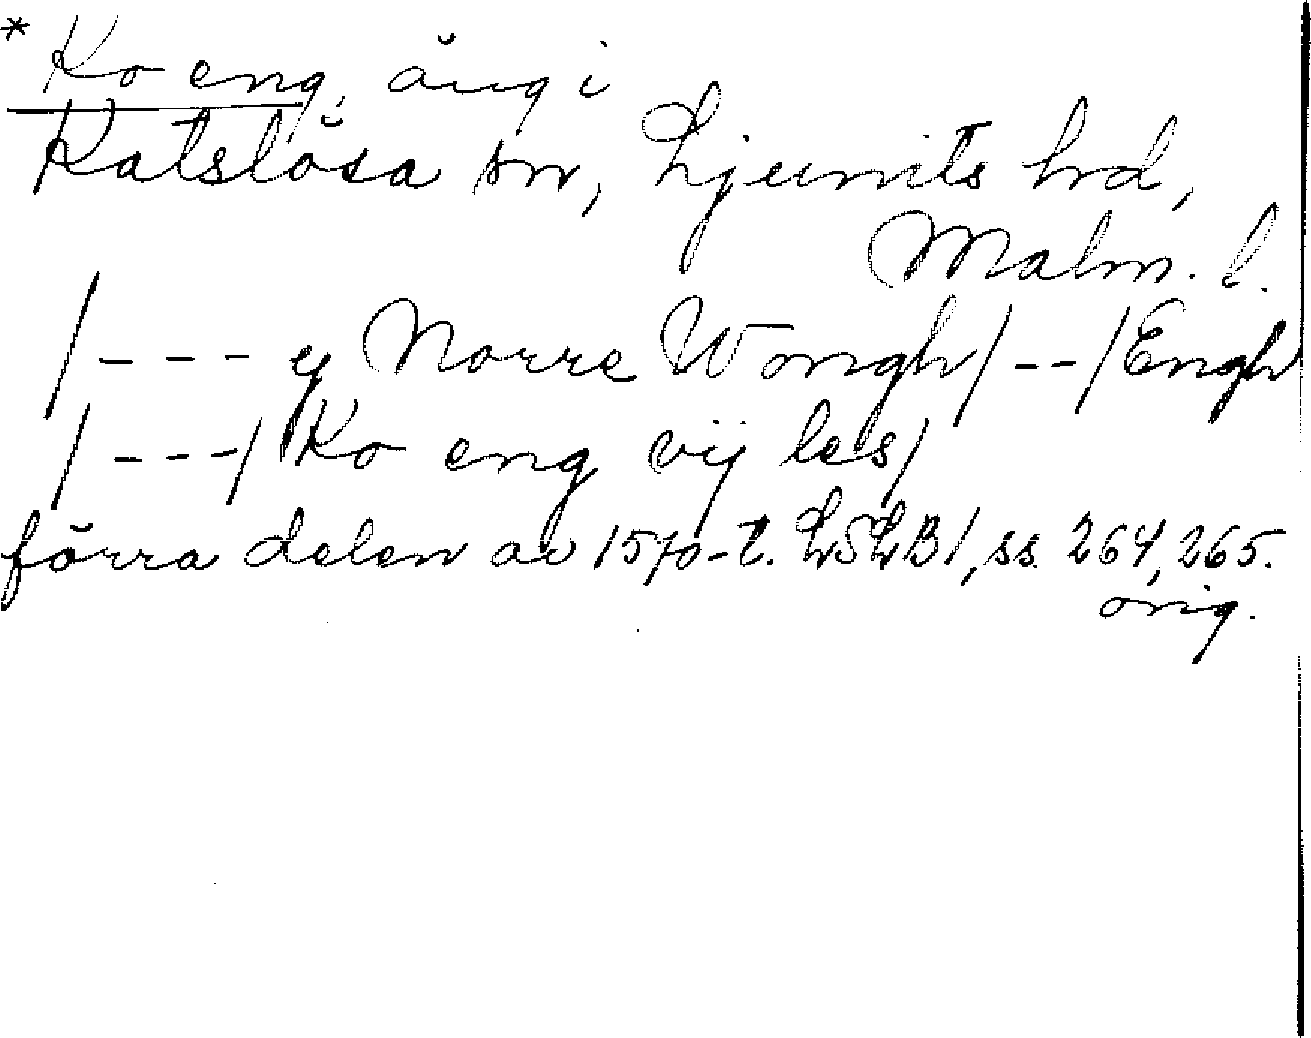 * Ko eng, äng i
Katslösa sn, Ljunits hrd,
Malm. l.
/--- y Norre Wongh/--/Engh
/---/ Ko eng vij les/
förra delen av 1570-t. LSLB1, ss. 264, 265.
orig.